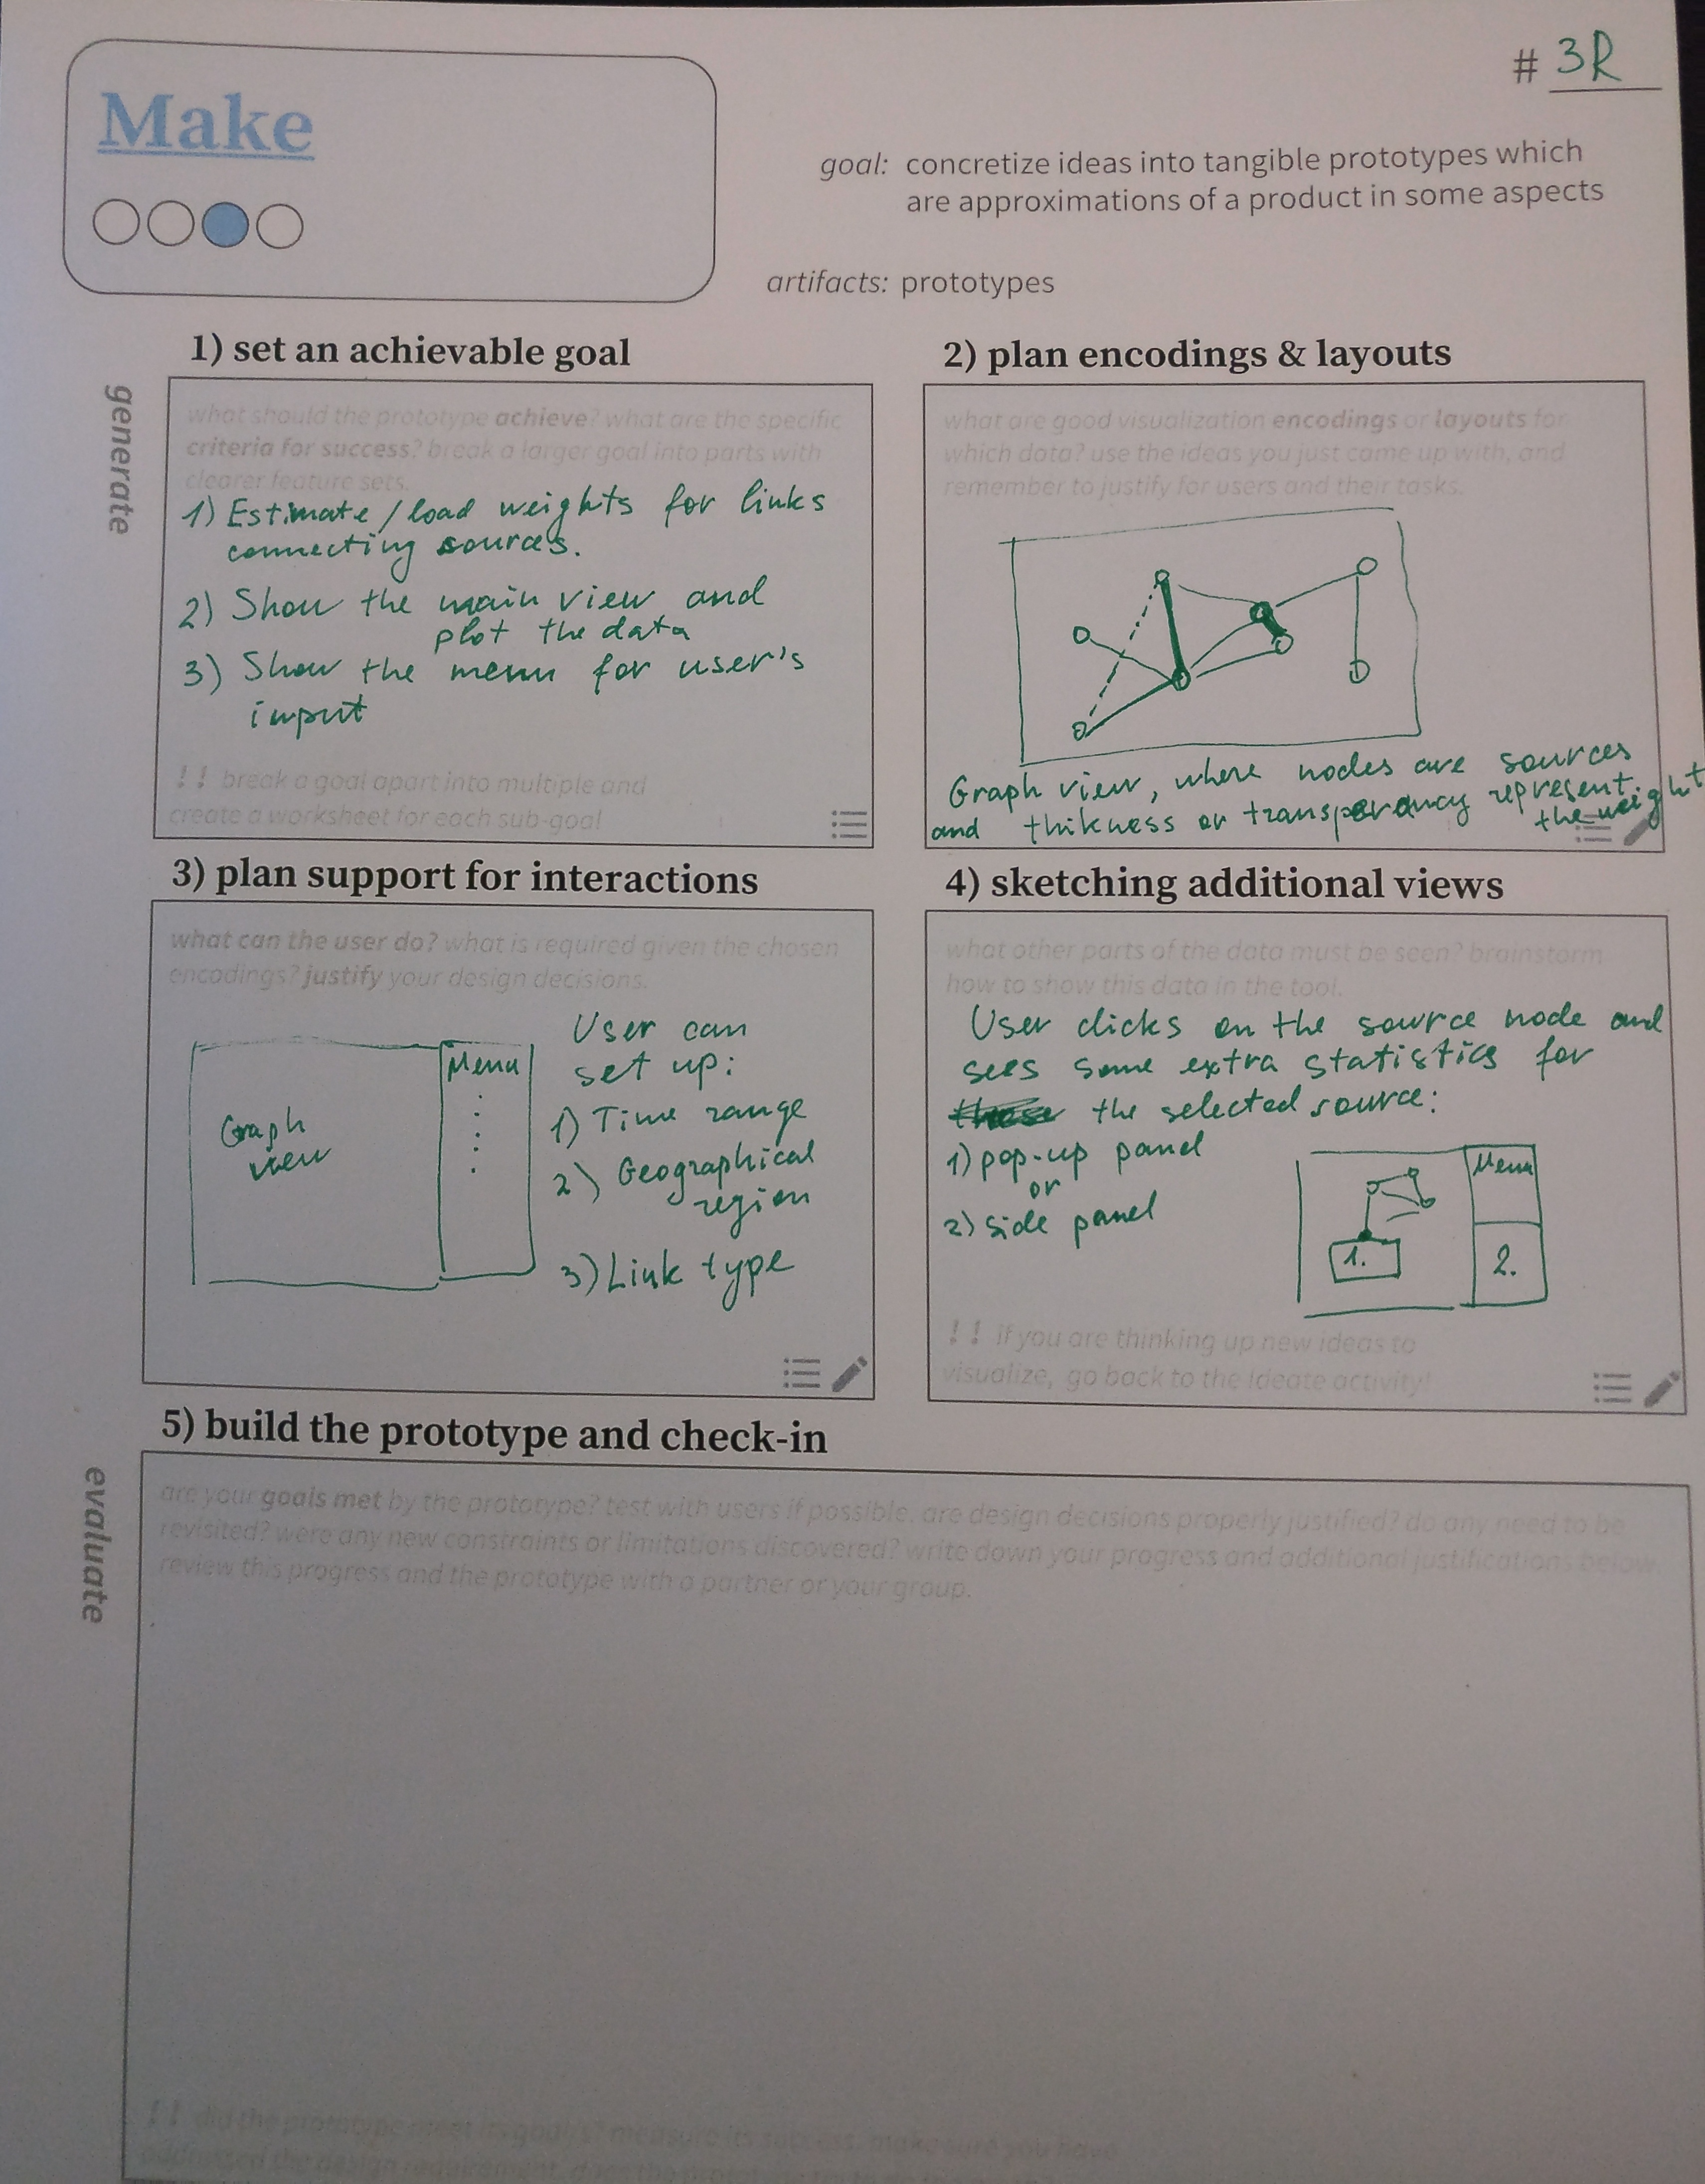 # 3R
Make
goal: concretize ideas into tangible prototypes which
are approximations of a product in some aspects
artifacts: prototypes
generate
1) set an achievable goal
what should the prototype achieve? what are the specific
criteria for success? break a larger goal into parts with
clearer feature sets.
1) Estimate/load weights for links
connecting sources.
2) Show the main view and
plot the data
3) Show the menu for user's
input
!! break a goal apart into multiple and
create a worksheet for each sub-goal
2) plan encodings & layouts
what are good visualization encodings or layouts for
which data? use the ideas you just came up with, and
remember to justify for users and their tasks.
Graph view, where nodes are sources
and thikness or transparancy represent
the weight
3) plan support for interactions
what can the user do? what is required given the chosen
encodings? justify your design decisions.
Graph
view
Menu
User can
set up:
1) Time range
2) Geographical
region
3) Link type
4) sketching additional views
what other parts of the data must be seen? brainstorm
how to show this data in the tool.
User clicks on the source node and
sees some extra statistics for
the selected source:
1) pop-up panel
or
2) side panel
Menu
1.
2.
!! if you are thinking up new ideas to
visualize, go back to the ideate activity!
evaluate
5) build the prototype and check-in
are your goals met by the prototype? test with users if possible. are design decisions properly justified? do any need to be
revisited? were any new constraints or limitations discovered? write down your progress and additional justifications below.
review this progress and the prototype with a partner or your group.
!! did the prototype meet its goals? measure its success. make sure you have
addressed the design requirement.